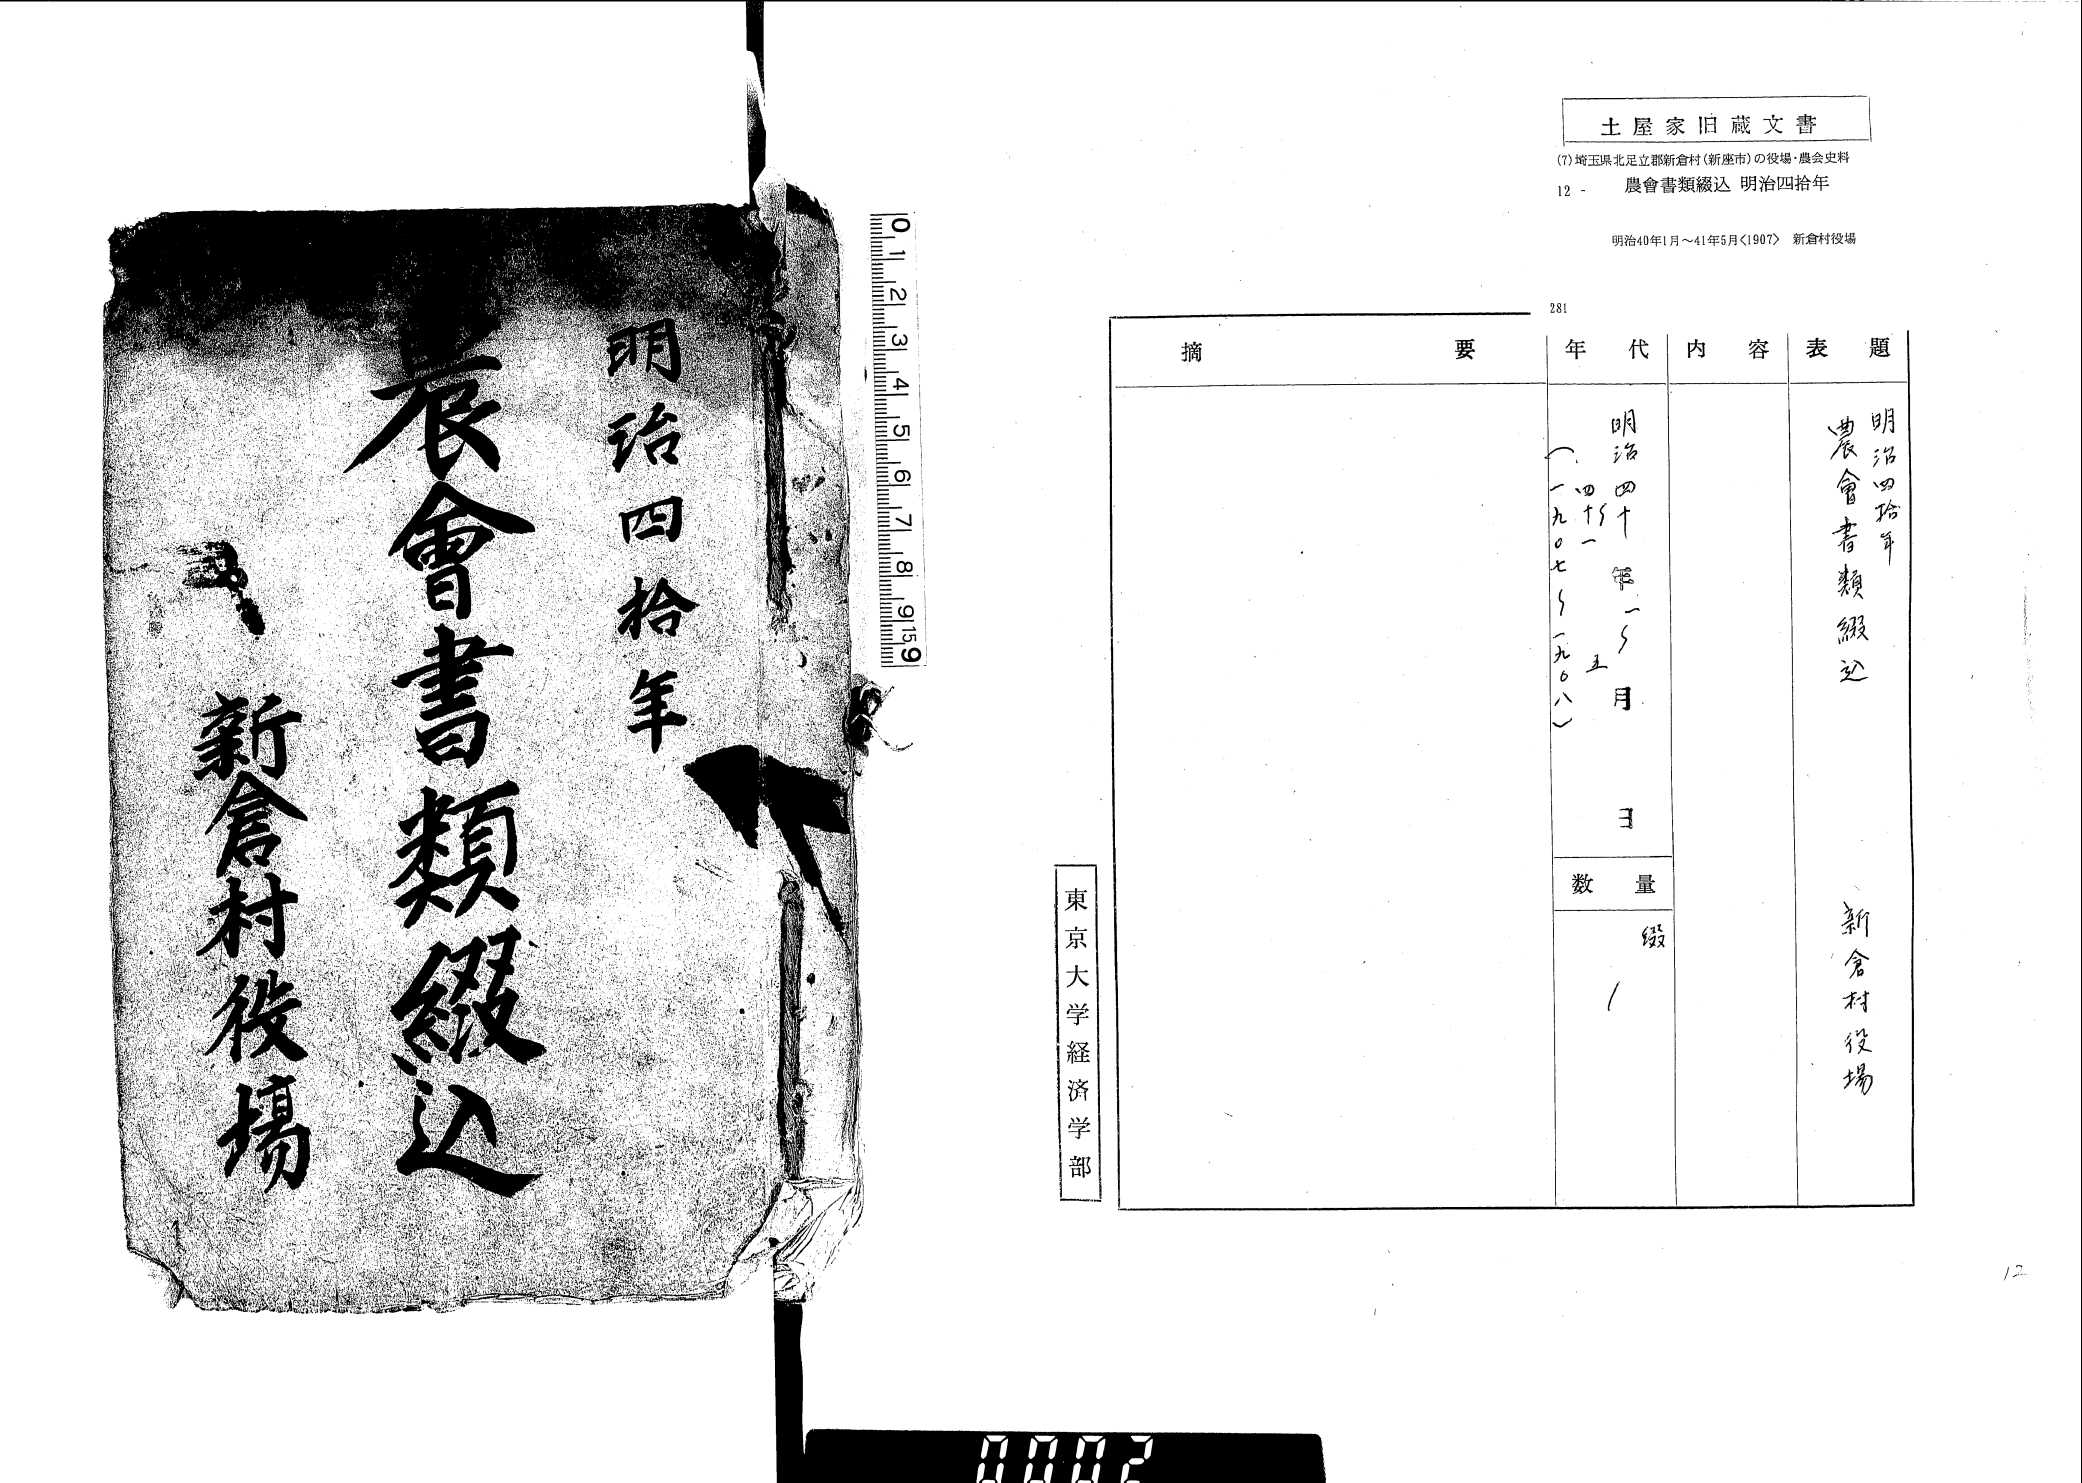 土屋家旧蔵文書
(7)埼玉県北足立郡新倉村(新座市)の役場・農会史料
12 - 農會書類綴込 明治四拾年
明治40年1月～41年5月<1907> 新倉村役場
281
表題
明治四拾年
農會書類綴込
新倉村役場
内容
年代
明治四十年一〜月日
四十一〜五
(一九〇七〜一九〇八)
数量
綴
1
摘要
東京大学経済学部
12
明治四拾年
農會書類綴込
新倉村役場
0 1 2 3 4 5 6 7 8 9 15 9
0002